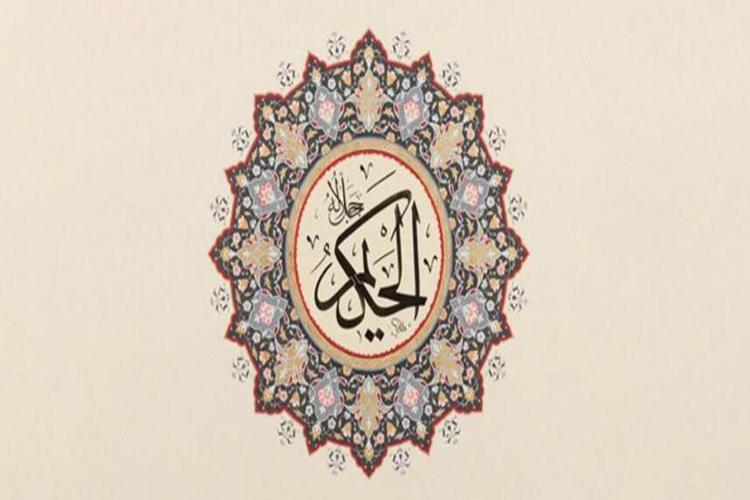 الحكيمُ
جل جلاله